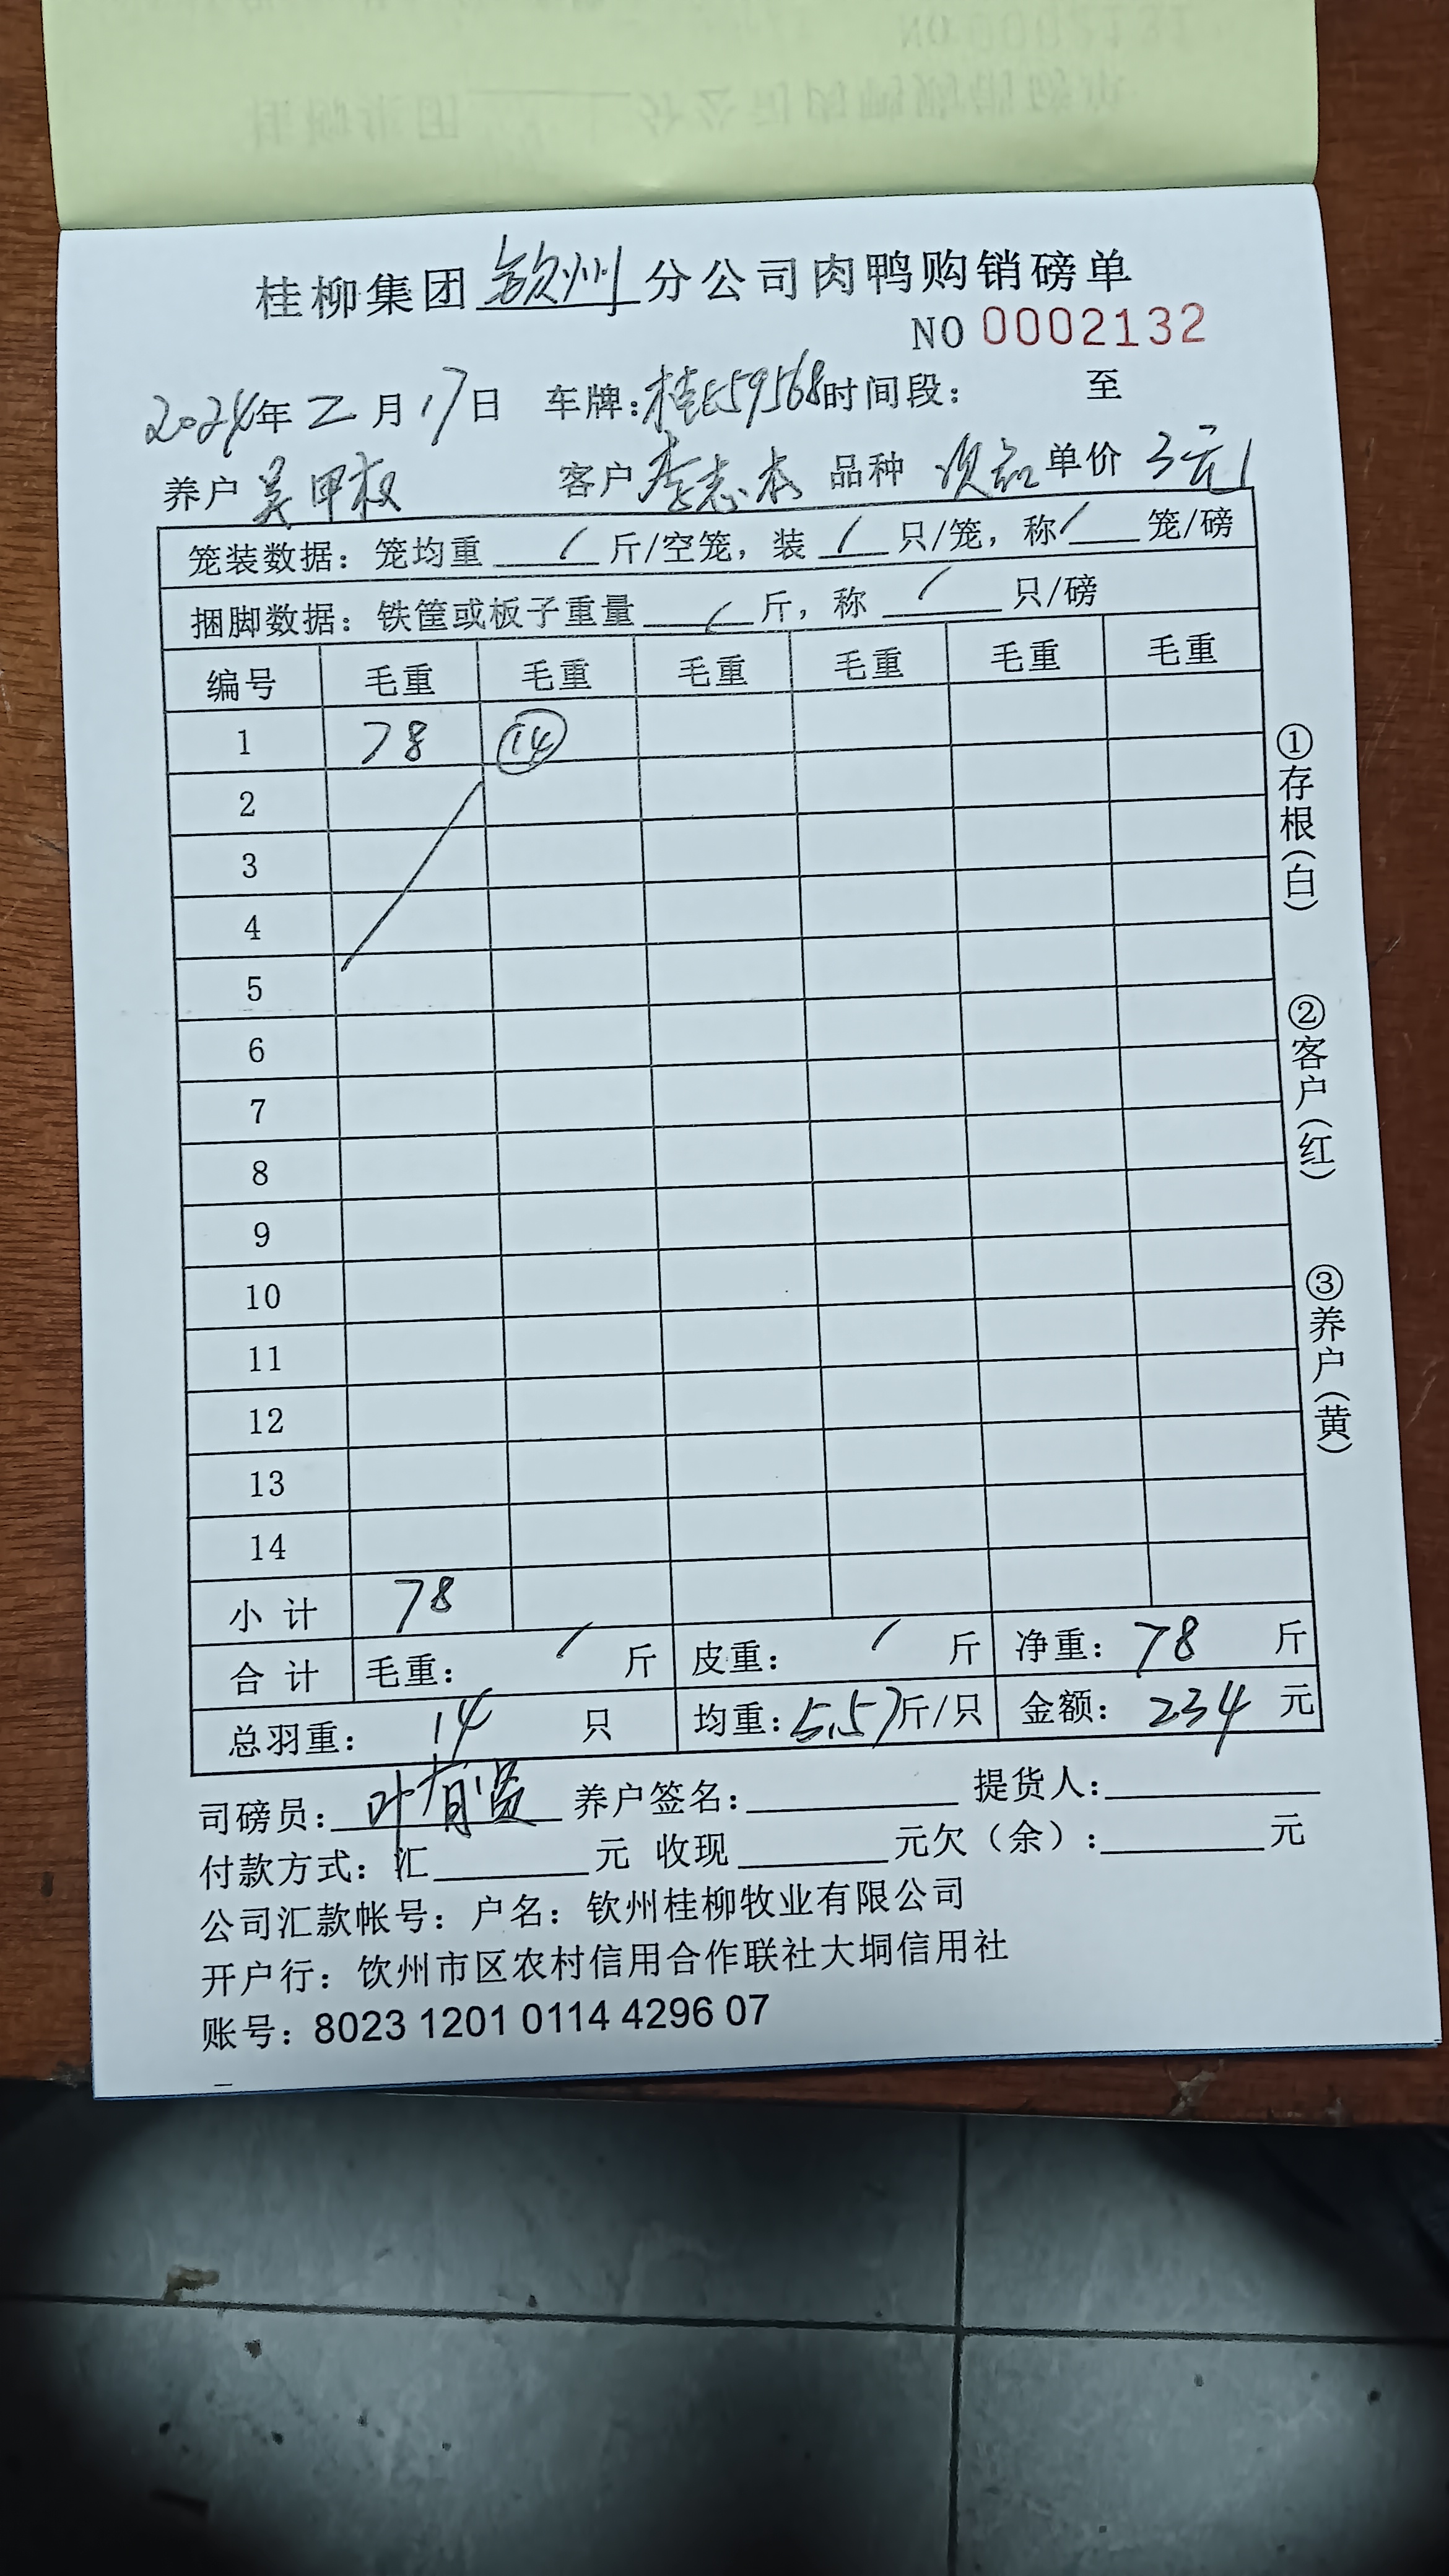 桂柳集团钦州分公司肉鸭购销磅单
NO 0002132
2024年二月17日 车牌:桂E59568时间段: 至
养户 吴甲权 客户 李志 品种 次品 单价 3元/
笼装数据: 笼均重 / 斤/空笼, 装 / 只/笼, 称 / 笼/磅
捆脚数据: 铁筐或板子重量 / 斤, 称 / 只/磅
编号 毛重 毛重 毛重 毛重 毛重 毛重
1 78 14
2
3
4
5
6
7
8
9
10
11
12
13
14
小 计 78
合 计 毛重: / 斤 皮重: / 斤 净重: 78 斤
总羽重: 14 只 均重: 5.57斤/只 金额: 234 元
司磅员: 叶 养户签名: 提货人:
付款方式: 汇 元 收现 元欠(余): 元
公司汇款帐号: 户名: 钦州桂柳牧业有限公司
开户行: 钦州市区农村信用合作联社大垌信用社
账号: 8023 1201 0114 4296 07
①存根(白)
②客户(红)
③养户(黄)